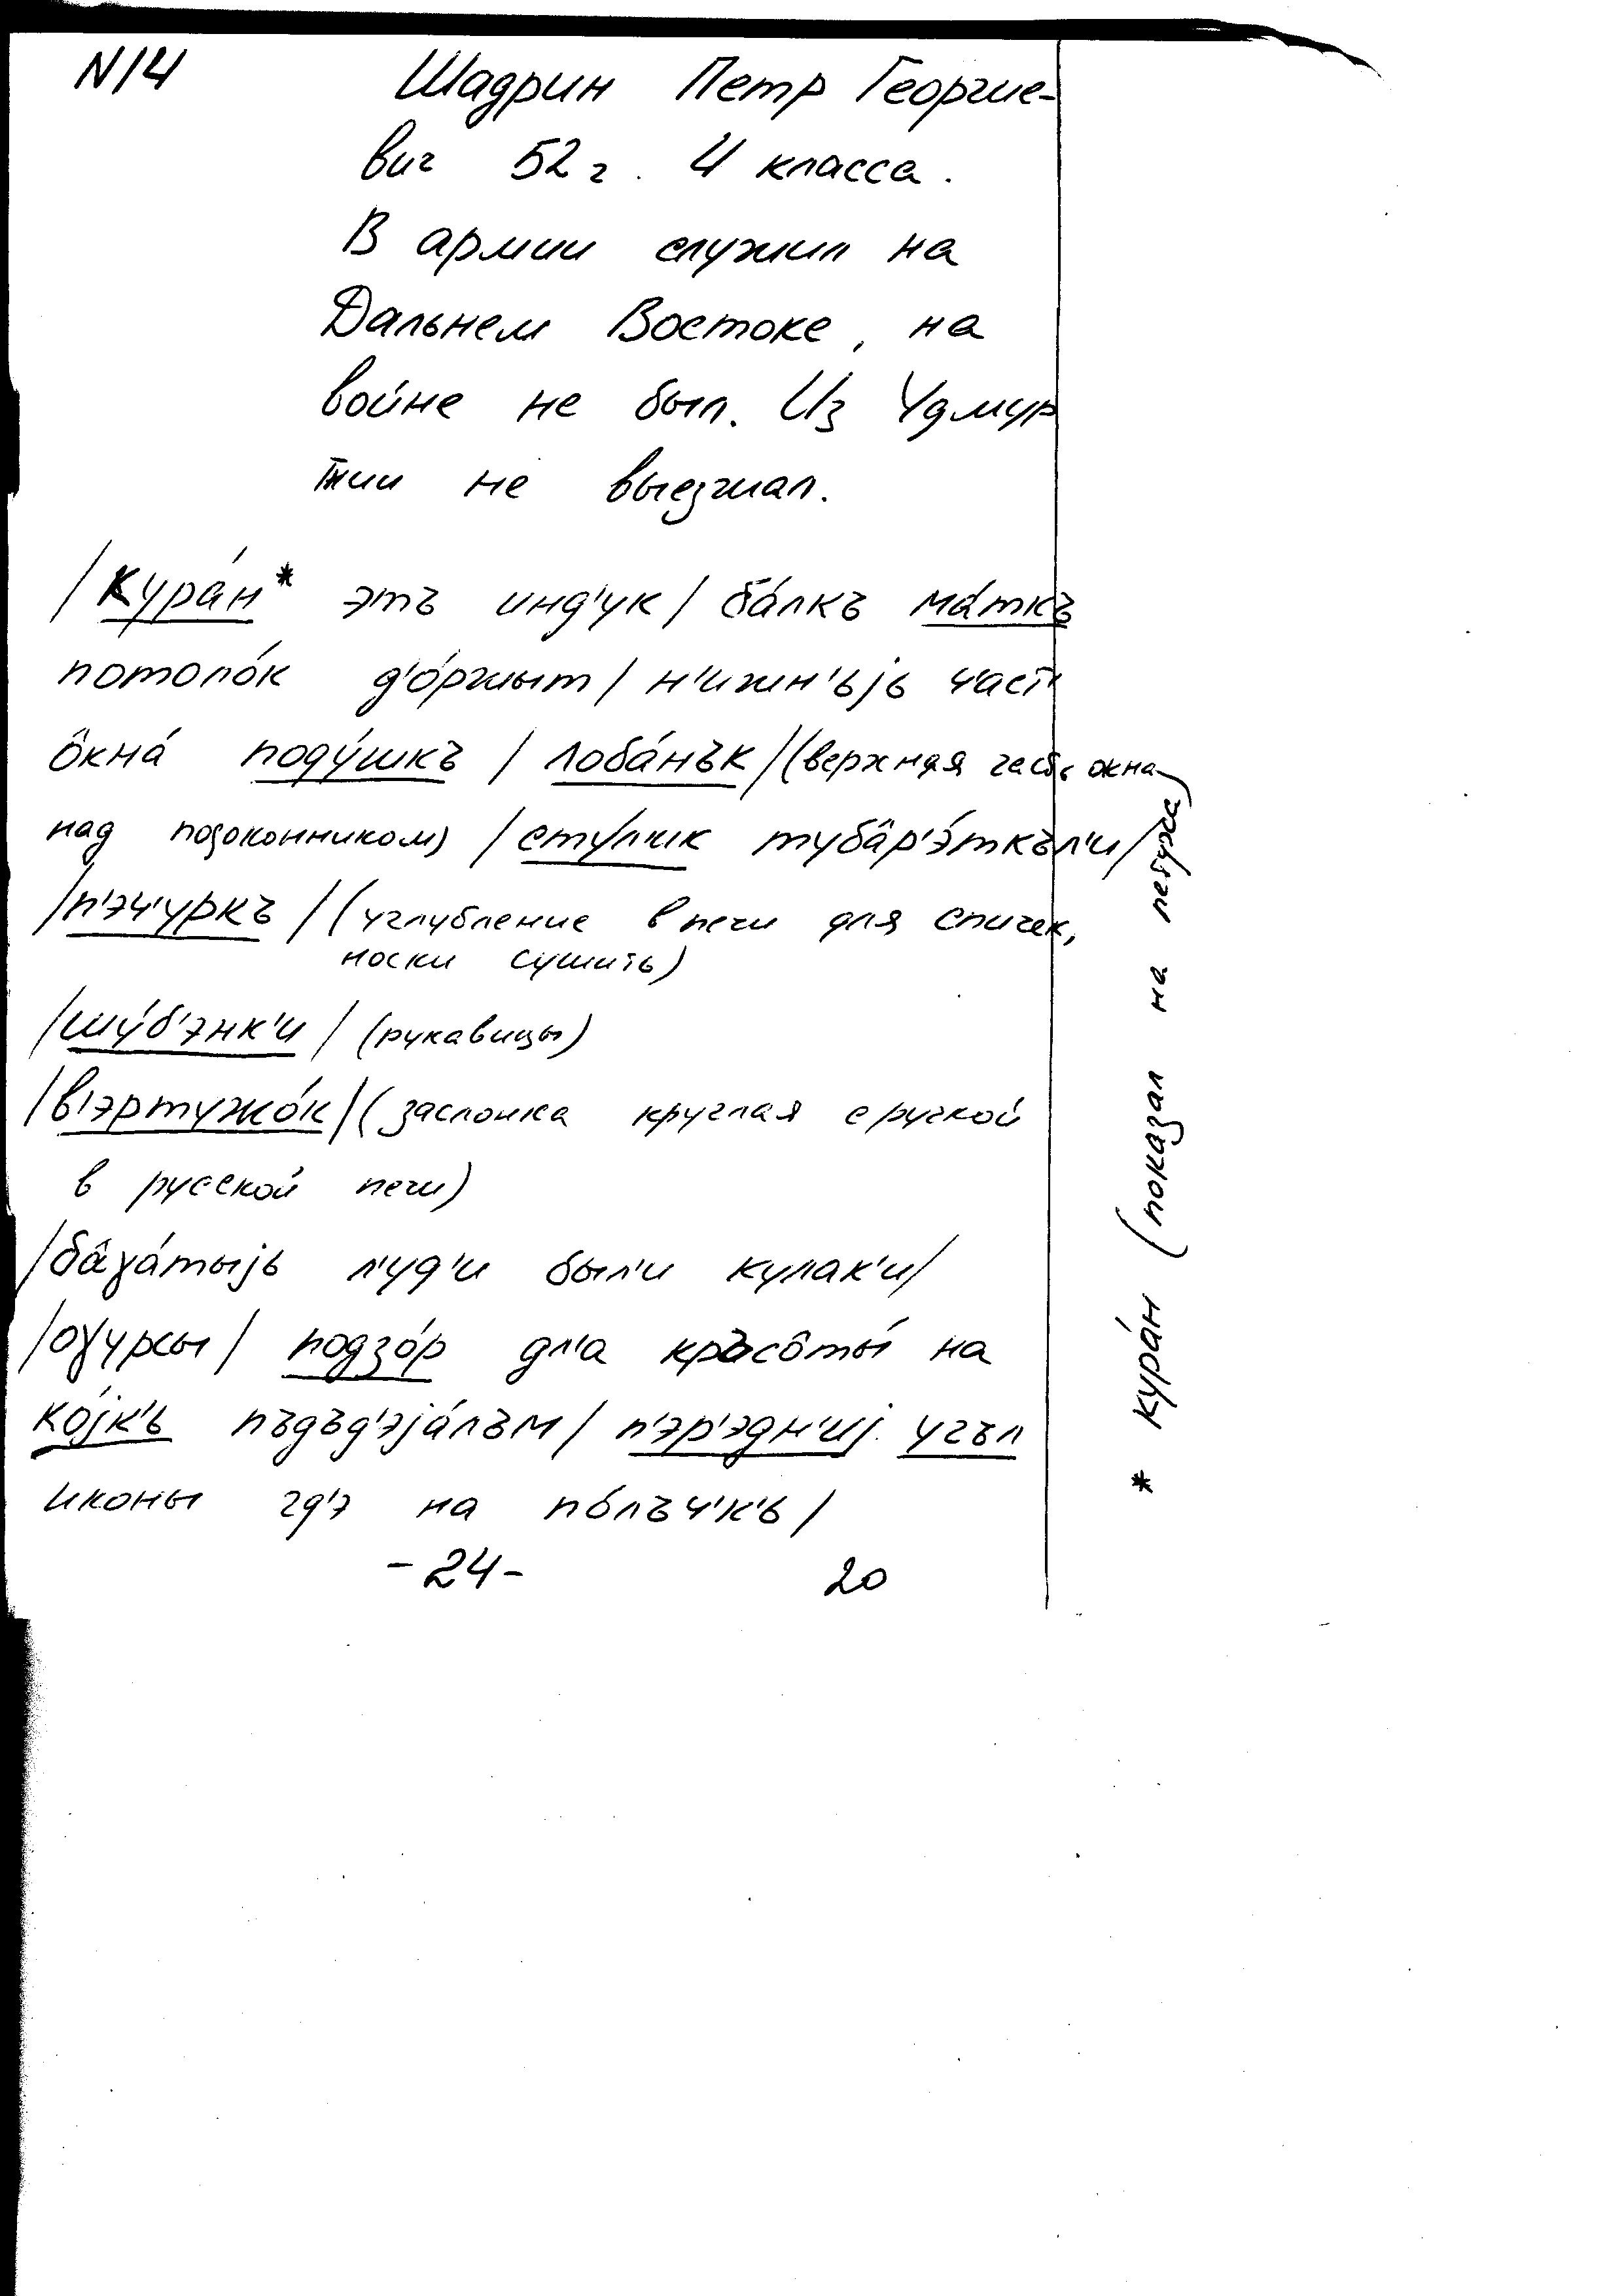 N14
Шадрин Петр Георгие-
вич 52 г. 4 класса.
В армии служил на
Дальнем Востоке, на
войне не был. Из Удмур
тии не выезжал.
/Кура́н* этъ инд'ук/ ба́лкъ ма́ткъ
потоло́к д'о́ржыт/ н'ижн'ьjь ч'аст'
о̂кна́ поду́шкъ / лоба́нък/(верхняя часть окна
над подоконником) /сту́лчик туба̂р'э́ткъл'и/
/п'эч'уркъ/(углубление в печи для спичек,
носки сушить)
/шу́б'энк'и/ (рукавицы)
/в'эртужо́к/(заслонка круглая с ручкой
в русской печи)
/ба̂γа́тыjь л'уд'и был'и кулак'и/
/оγурсы/ подзо́р дл'а кръсо̂ты́ на
ко́jк'ь пъдъд'эjа́лъм/ п'эр'эдн'иj угъл
иконы гд'э на по́лъч'к'ь/
-24-
20
* кура́н (показал на петуха)